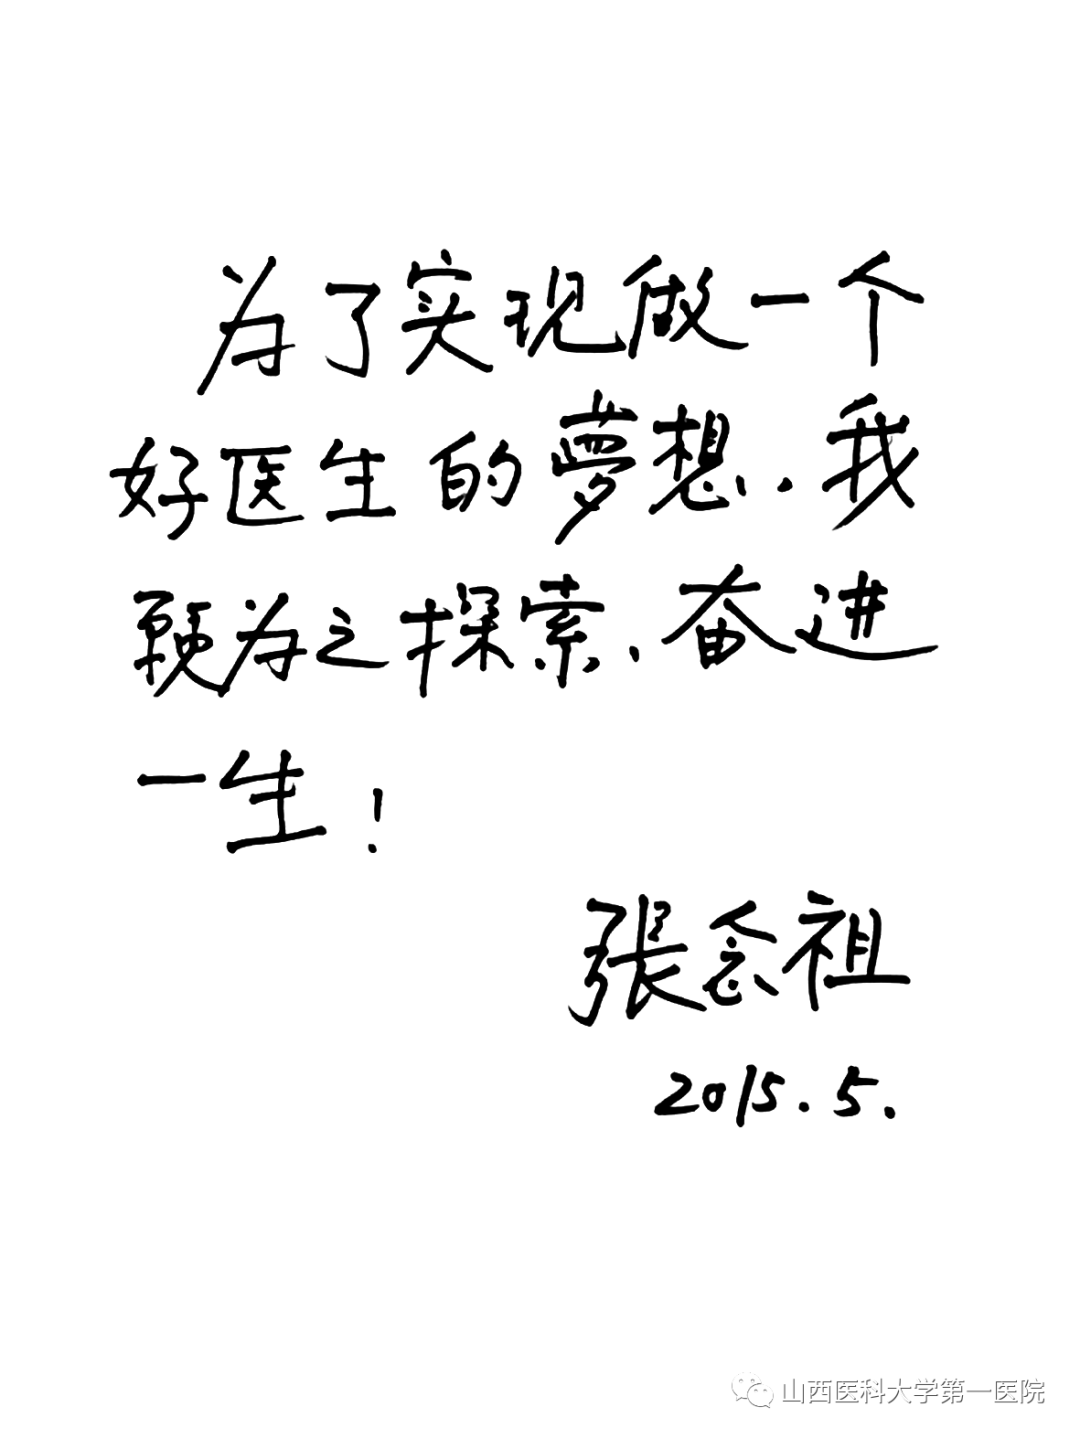 为了实现做一个
好医生的夢想、我
願为之探索、奋进
一生！
張念祖
2015.5.
山西医科大学第一医院